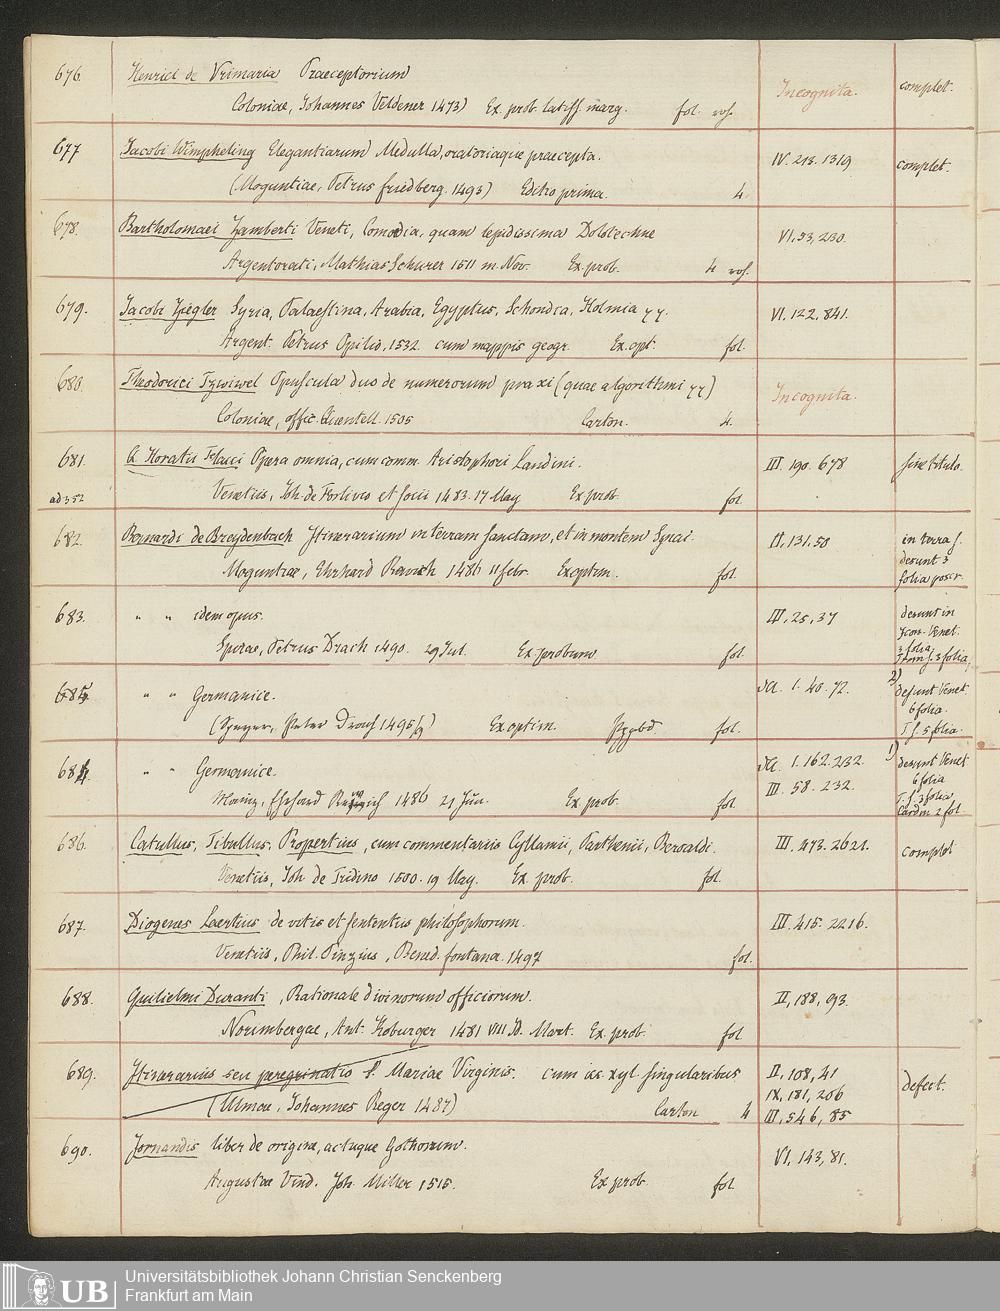 676. Henrici de Vrimaria Praeceptorium Incognita. complet.
Coloniae, Johannes Veldener 1473) Ex. prob. latiss. marg. fol.
677 Jacobi Wimpheling Elegantiarum Medulla, oratoriaque praecepta. IV. 213. 1319 complet.
(Moguntiae, Petrus friedberg. 1493) Editio prima. 4.
678. Bartholomaei Zamberti Veneti, Comoedia, quam lepidissima Dolotechne VI, 53, 230.
Argentorati, Mathias Schurer 1511 m. Nov. Ex. prob. 4
679. Jacobi Ziegler Syria, Palaestina, Arabia, Egyptus, Schondia, Holmia VI, 122, 841.
Argent. Petrus Opilio, 1532. cum mappis geogr. Ex. opt. fol.
680. Theodorici Tzwiwel Opuscula duo de numerorum praxi (quae algorithmi Incognita.
Coloniae, offic. Quentell. 1505 Carton. 4.
681. Q. Horatii Flacci Opera omnia, cum comm. Aristophori Landini. III. 190. 678 sine titulo.
ad 352 Venetiis, Joh. de Forlivio et socii 1483. 17 May Ex prob. fol
682. Bernardi de Breydenbach Itinerarium in terram sanctam, et in montem Synai. II, 131. 50 in terra s.
desunt 3
Moguntiae, Ehrhard Rewich 1486 11 febr. Ex optim. fol. folia poster.
683. " " idem opus. III, 25, 37 desunt in
Venet.
3 folia
Spirae, Petrus Drach 1490. 29 Jul. Ex. probum fol. 3 folia,
685 " " Germanice. 1. 40. 72. 2) desunt Venet
6 folia.
(Speyer, Peter Drach 1495/9) Ex optim. fol. T. s. 5 folia.
684. " " Germanice. 1. 162. 232. 1) desunt Venet
III. 58. 232. 6 folia
T. s. 3 folia
Mainz, Ehrhard Rewich 1486 21 Jun. Ex. prob. fol 2 fol
686. Catullus, Tibullus, Propertius, cum commentariis Cyllanii, Parthenii, Beroaldi. III. 473. 2621. complet
Venetiis, Joh de Tridino 1500. 19 May. Ex. prob. fol.
687. Diogenes Laertius de vitis et sententiis philosophorum. III. 415. 2216.
Venetiis, Phil. Pinzius, Bened. fontana. 1497 fol.
688. Guilielmi Duranti, Rationale divinorum officiorum. II, 188, 93.
Norimbergae, Ant. Koburger 1481 VIII Id. Mart. Ex. prob. fol
689. Itinerarius seu peregrinatio S. Mariae Virginis. cum ic. xyl. singularibus II, 108, 41 defect.
IX, 181, 206
(Ulmae, Johannes Reger 1487) Carton 4 III, 546, 85
690. Jornandis liber de origine, actuque Gothorum. VI, 143, 81.
Augustae Vind. Joh. Miller 1515. Ex prob. fol
UB Universitätsbibliothek Johann Christian Senckenberg
Frankfurt am Main